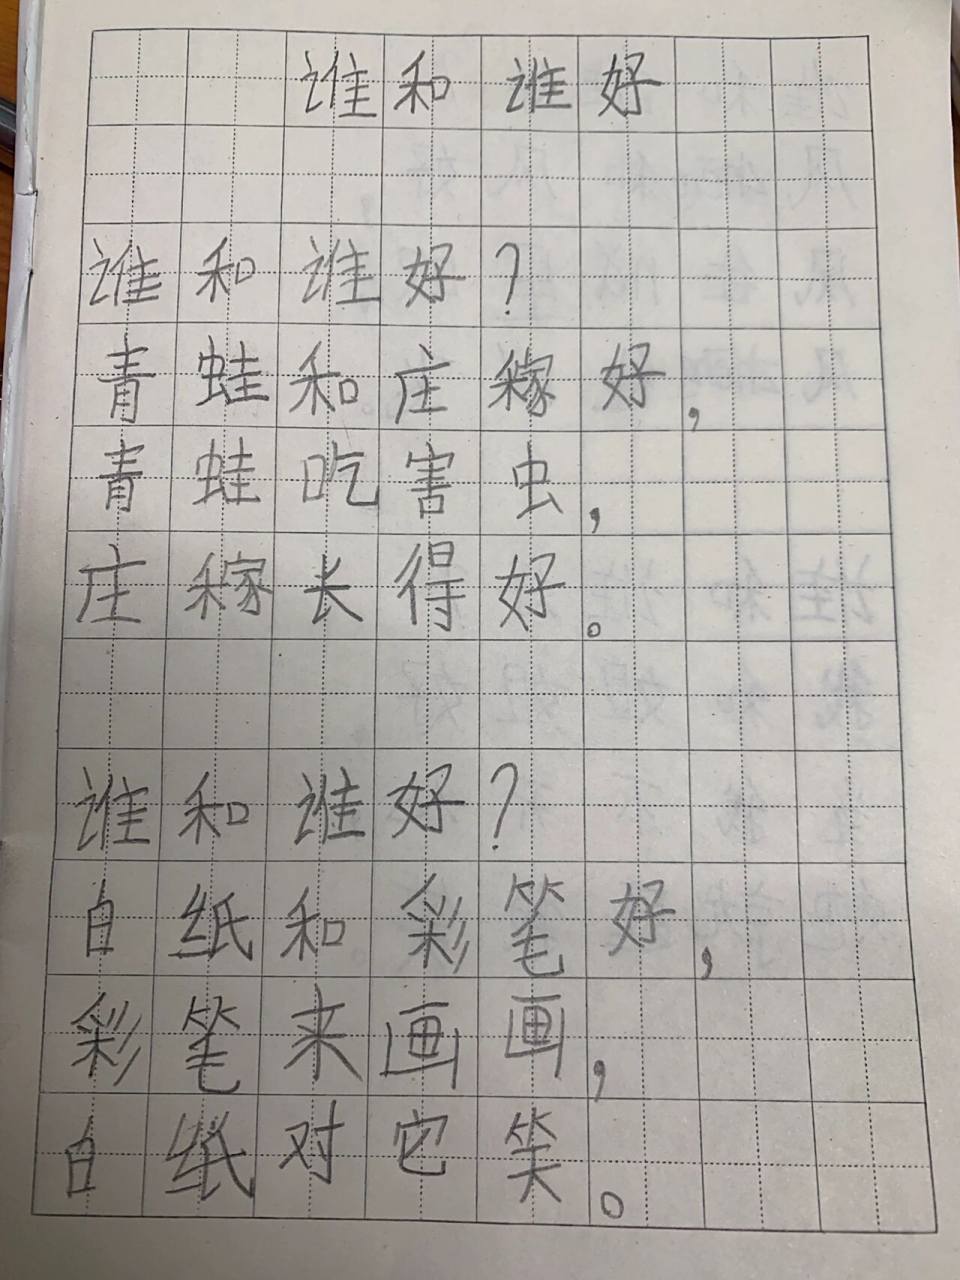 谁和谁好
谁和谁好?
青蛙和庄稼好,
青蛙吃害虫,
庄稼长得好。
谁和谁好?
白纸和彩笔好,
彩笔来画画,
白纸对它笑。